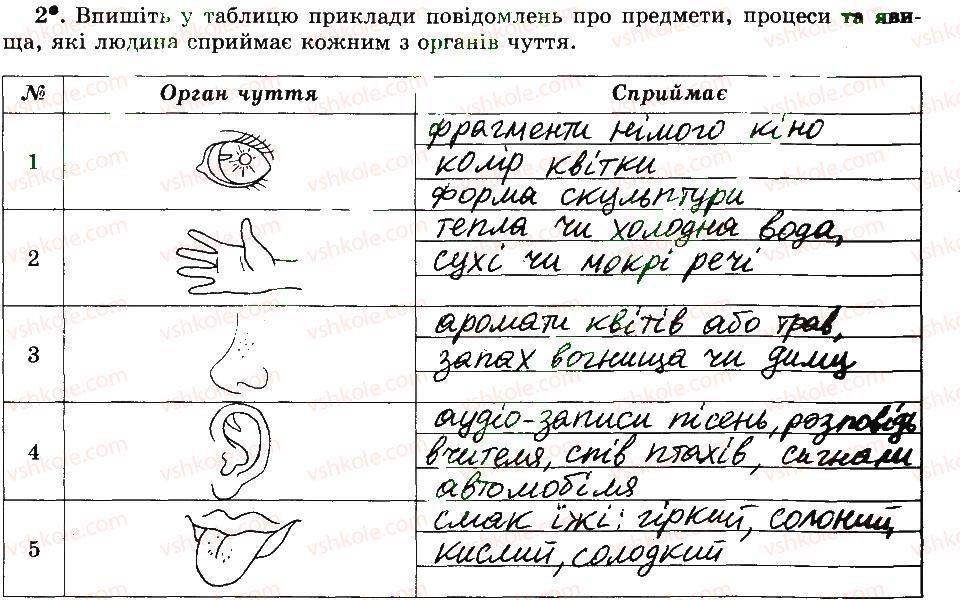 2•. Впишіть у таблицю приклади повідомлень про предмети, процеси та яви-
ща, які людина сприймає кожним з органів чуття.
№ Орган чуття Сприймає
1
фрагменти німого кіно
колір квітки
форма скульптури
2
тепла чи холодна вода,
сухі чи мокрі речі
3
аромати квітів або трав,
запах вогнища чи диму
4
аудіо-записи пісень, розповідь
вчителя, спів птахів, сигнали
автомобіля
5
смак їжі: гіркий, солоний,
кислий, солодкий
vshkole.com